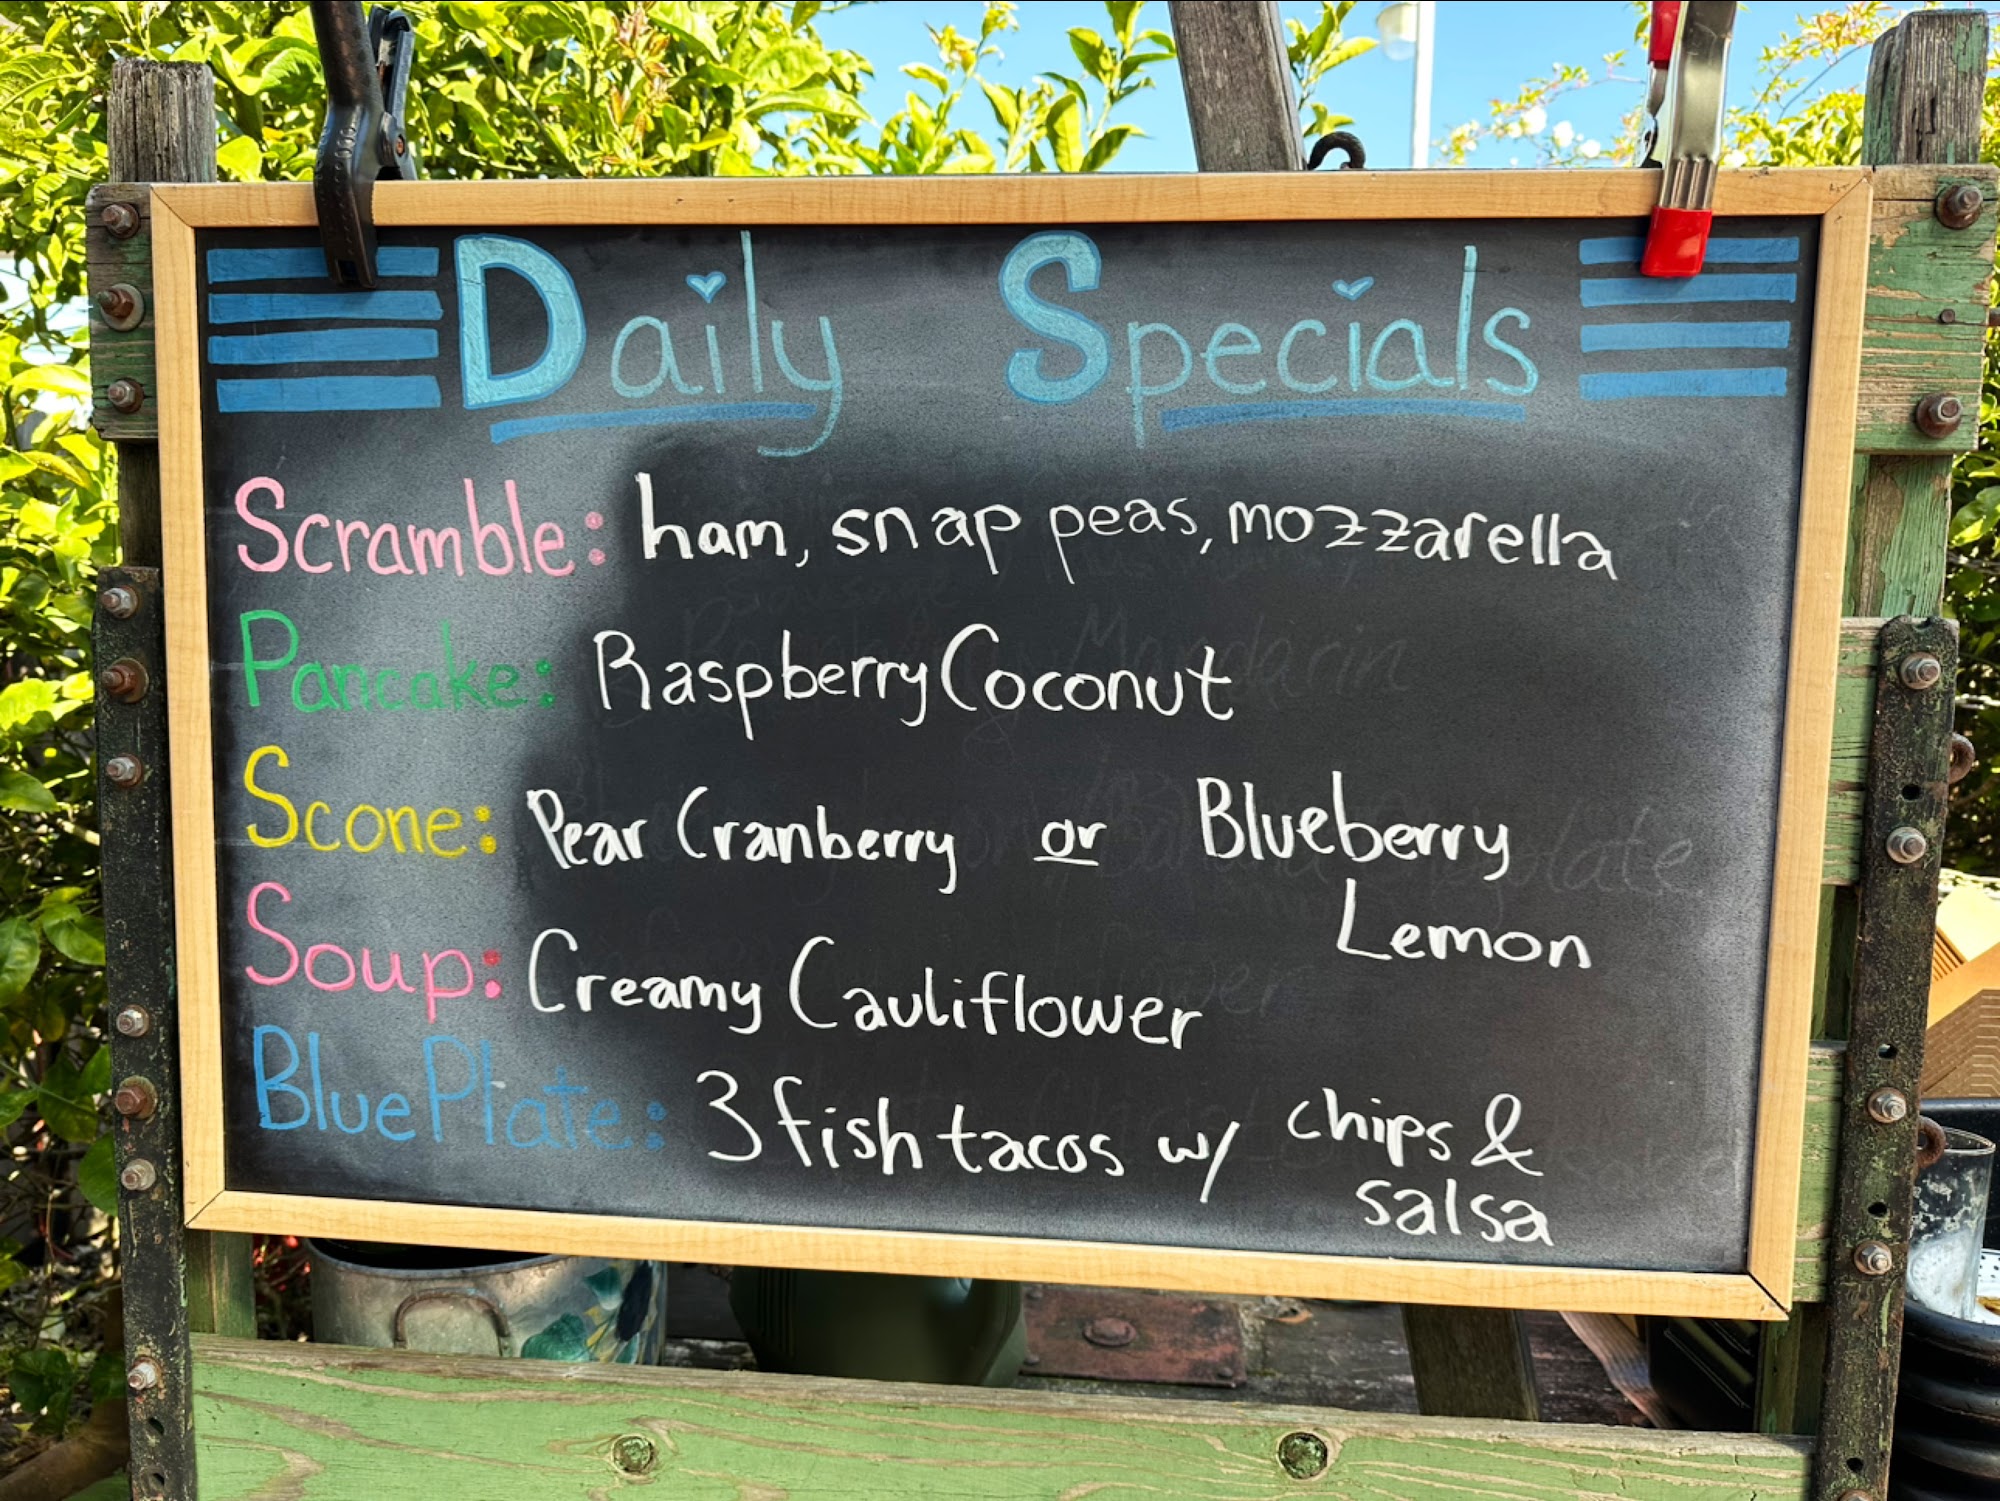 Daily Specials
Scramble: ham, snap peas, mozzarella
Pancake: Raspberry Coconut
Scone: Pear Cranberry or Blueberry
Lemon
Soup: Creamy Cauliflower
Blue Plate: 3 fish tacos w/ chips &
salsa